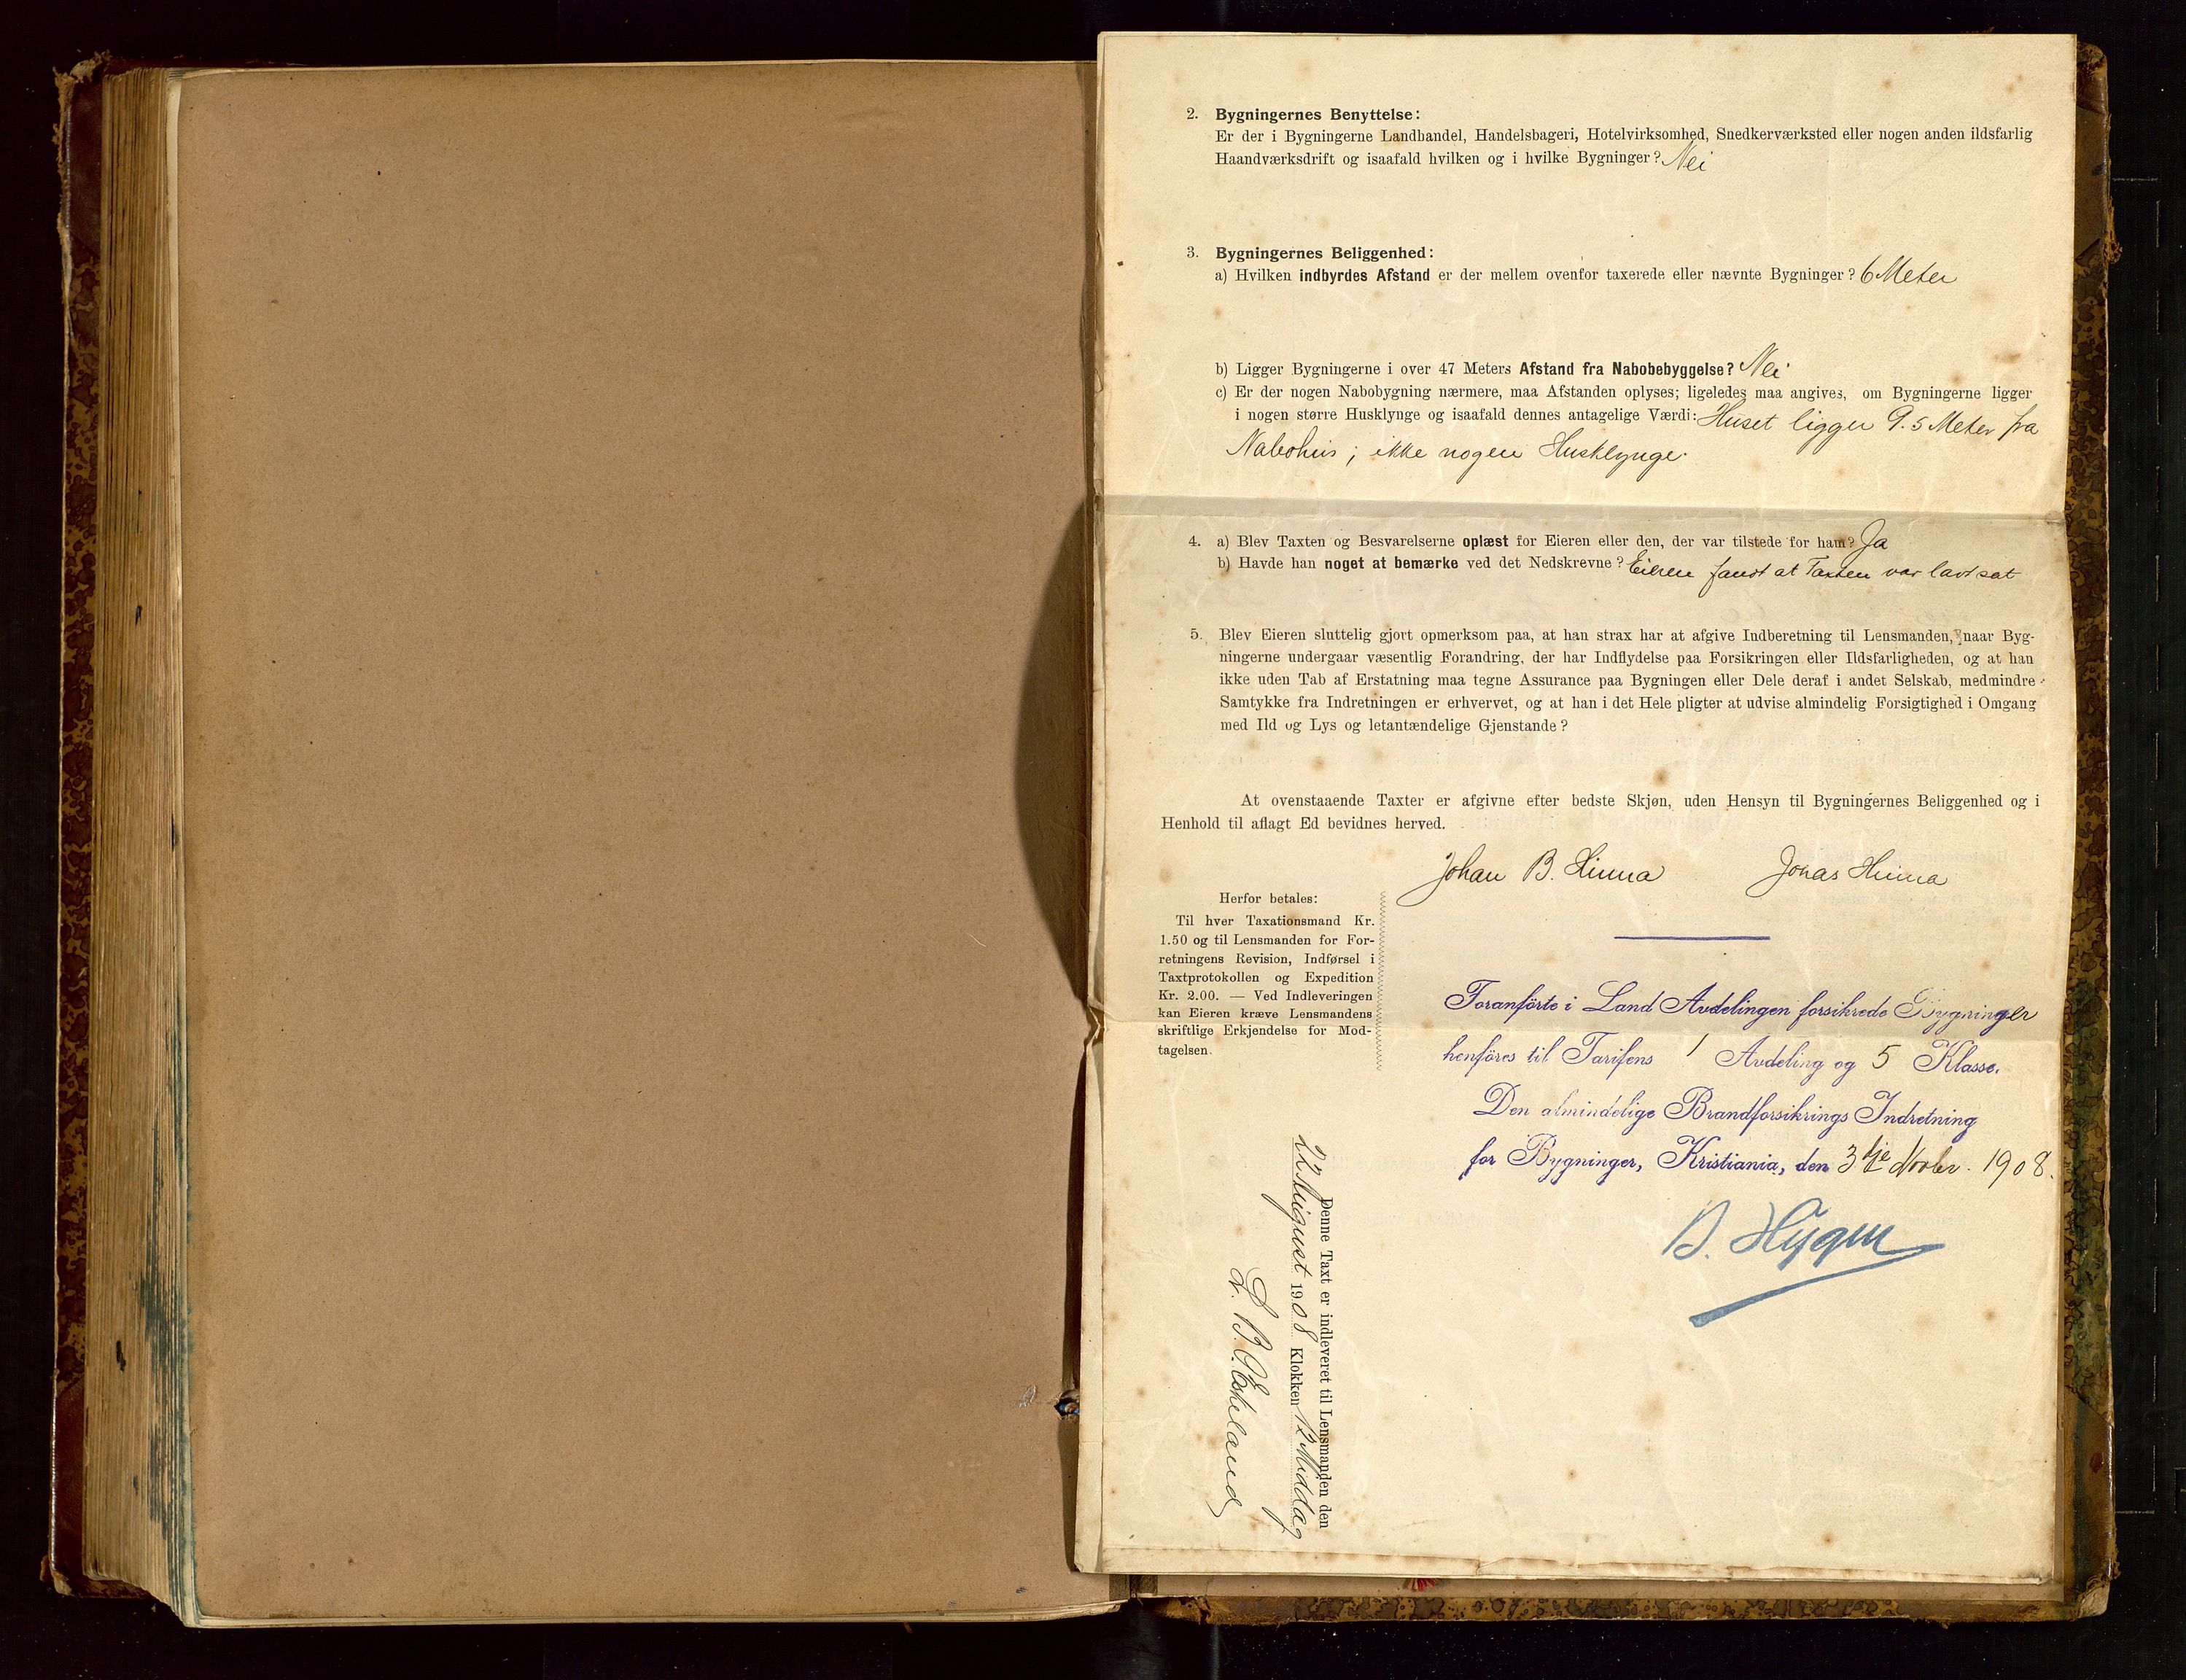 2. Bygningernes Benyttelse:
Er der i Bygningerne Landhandel, Handelsbageri, Hotelvirksomhed, Snedkerværksted eller nogen anden ildsfarlig
Haandværksdrift og isaafald hvilken og i hvilke Bygninger? Nei
3. Bygningernes Beliggenhed:
a) Hvilken indbyrdes Afstand er der mellem ovenfor taxerede eller nævnte Bygninger? 6 Meter
b) Ligger Bygningerne i over 47 Meters Afstand fra Nabobebyggelse? Nei
c) Er der nogen Nabobygning nærmere, maa Afstanden oplyses; ligeledes maa angives, om Bygningerne ligger
i nogen større Husklynge og isaafald dennes antagelige Værdi: Huset ligger 9.5 Meter fra
Nabohus; ikke nogen Husklynge.
4. a) Blev Taxten og Besvarelserne oplæst for Eieren eller den, der var tilstede for ham? Ja
b) Havde han noget at bemærke ved det Nedskrevne? Eieren fandt at Taxten var lavt sat
5. Blev Eieren sluttelig gjort opmerksom paa, at han strax har at afgive Indberetning til Lensmanden, naar Byg-
ningerne undergaar væsentlig Forandring, der har Indflydelse paa Forsikringen eller Ildsfarligheden, og at han
ikke uden Tab af Erstatning maa tegne Assurance paa Bygningen eller Dele deraf i andet Selskab, medmindre
Samtykke fra Indretningen er erhvervet, og at han i det Hele pligter at udvise almindelig Forsigtighed i Omgang
med Ild og Lys og letantændelige Gjenstande?
At ovenstaaende Taxter er afgivne efter bedste Skjøn, uden Hensyn til Bygningernes Beliggenhed og i
Henhold til aflagt Ed bevidnes herved.
Johan B. Hinna Jonas Hinna
Herfor betales:
Til hver Taxationsmand Kr.
1.50 og til Lensmanden for For-
retningens Revision, Indførsel i
Taxtprotokollen og Expedition
Kr. 2.00. — Ved Indleveringen
kan Eieren kræve Lensmandens
skriftlige Erkjendelse for Mod-
tagelsen.
Foranförte i Land Avdelingen forsikrede Bygninger
henföres til Tarifens 1 Avdeling og 5 Klasse.
Den almindelige Brandforsikrings Indretning
for Bygninger, Kristiania, den 3dje Novbr. 1908.
B. Hygen
Denne Taxt er indleveret til Lensmanden den
22 August 1908 Klokken 12 Middag
L. B. Eskeland